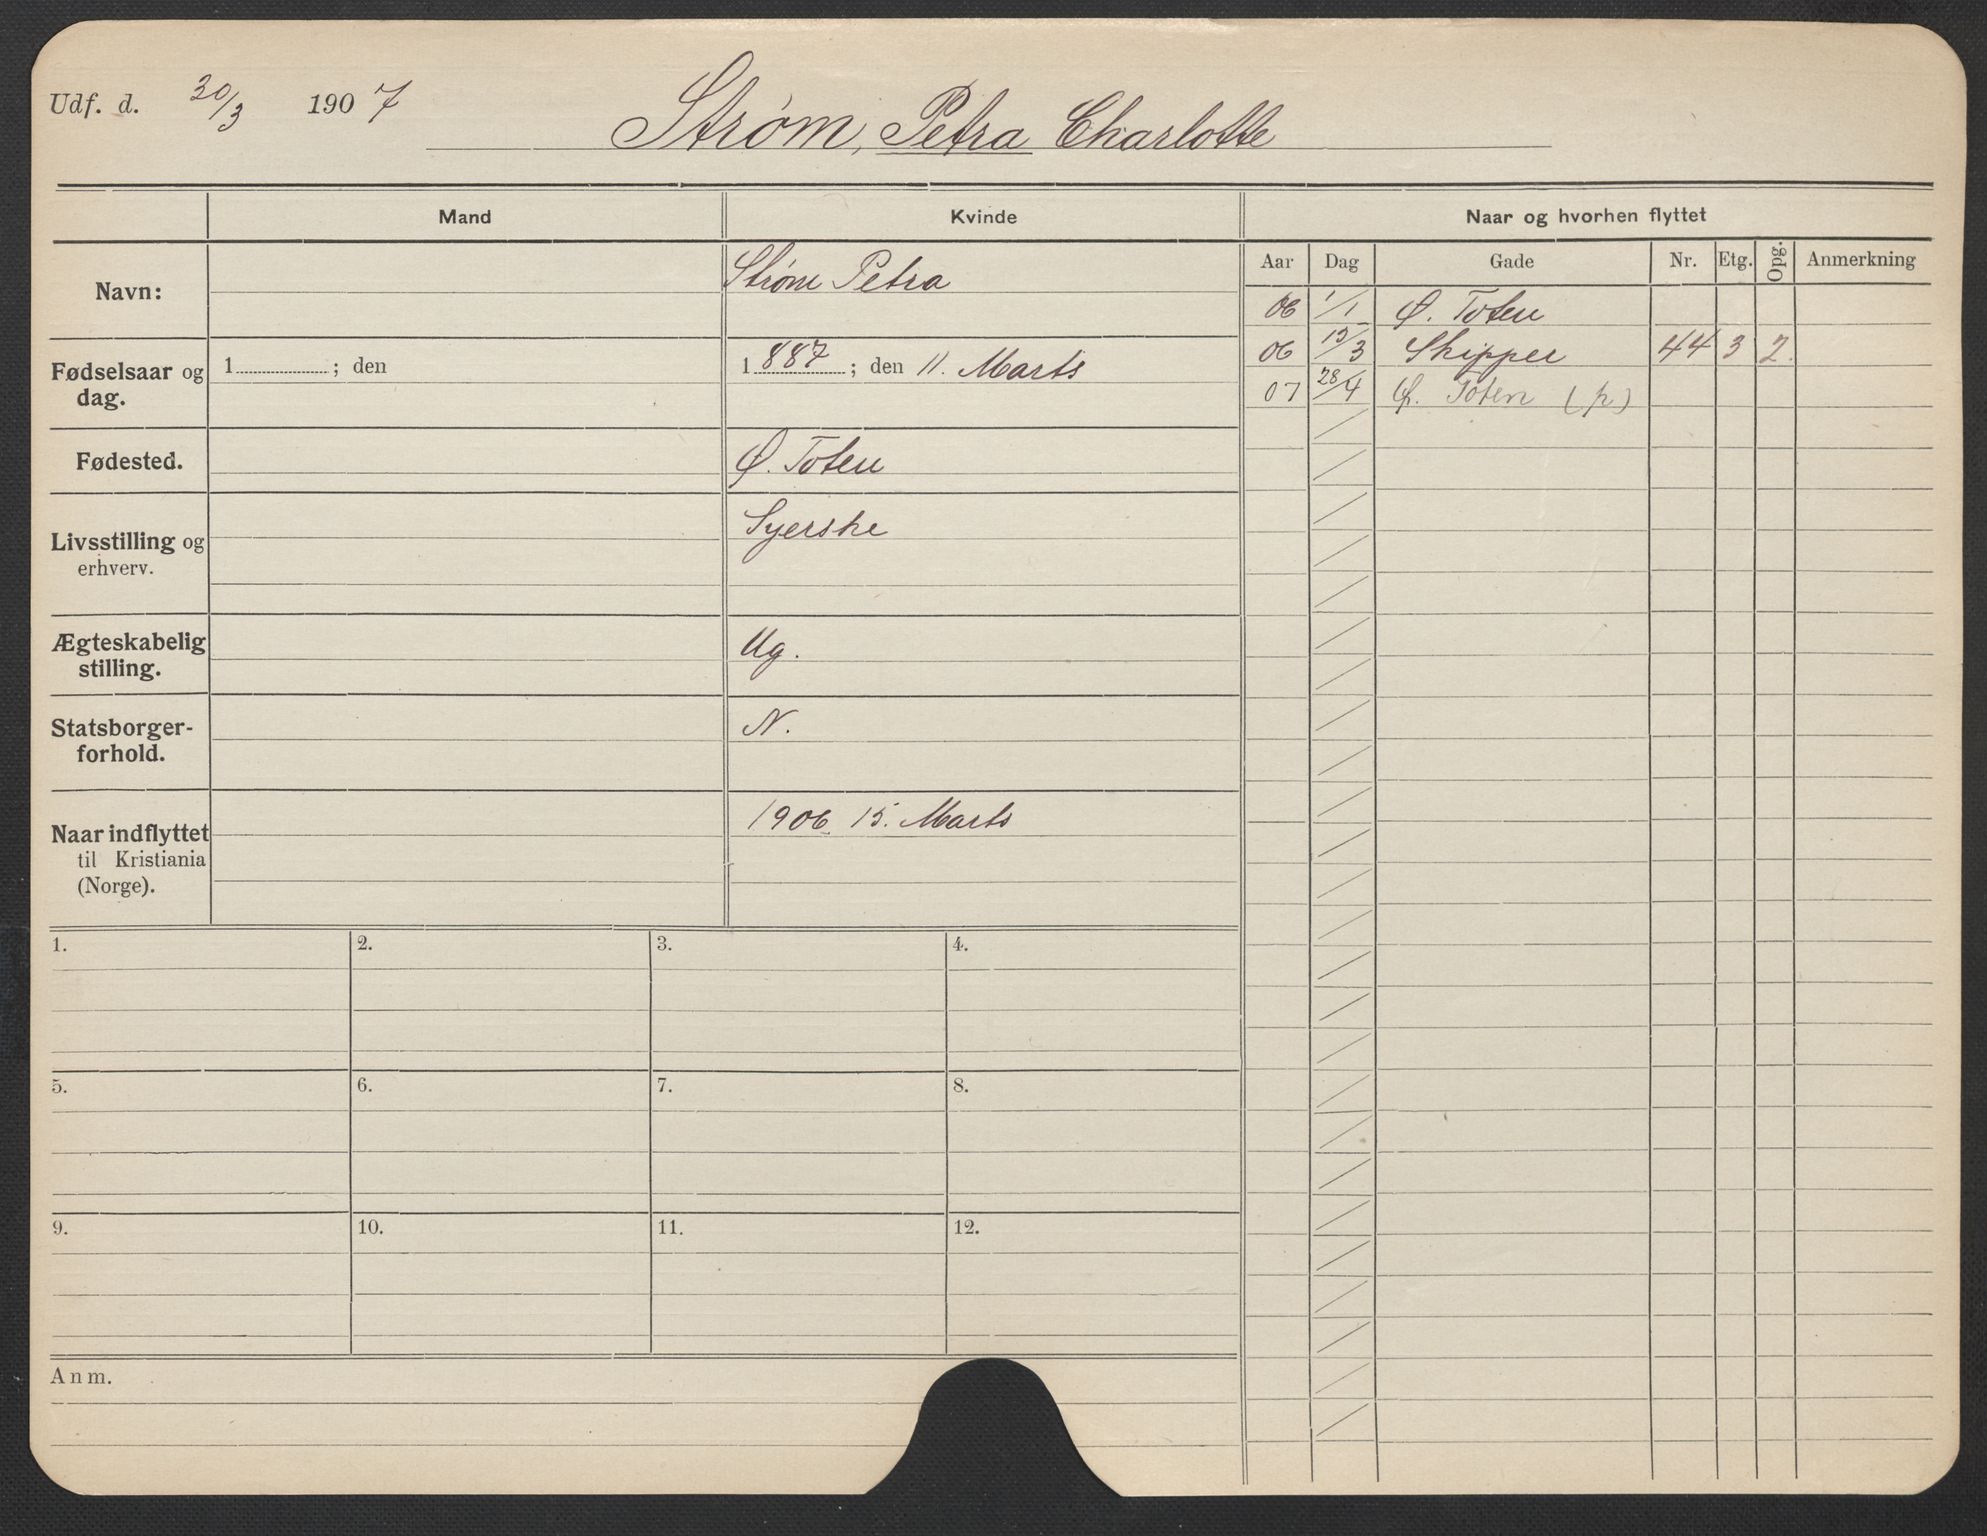 Udf. d. 20/3 1907
Strøm, Petra Charlotte
Mand
Kvinde
Naar og hvorhen flyttet
Navn:
Strøm Petra
Fødselsaar og
dag.
1 ; den
1887 ; den 11. Marts
Fødested.
Ø. Toten
Livsstilling og
erhverv.
Syerske
Ægteskabelig
stilling.
Ug.
Statsborger-
forhold.
N.
Naar indflyttet
til Kristiania
(Norge).
1906 15. Marts
Aar Dag Gade Nr. Etg. Opg. Anmerkning
06 1/1 Ø. Toten
06 15/3 Skipper 44 3 2.
07 28/4 Ø. Toten (p)
1. 2. 3. 4.
5. 6. 7. 8.
9. 10. 11. 12.
Anm.